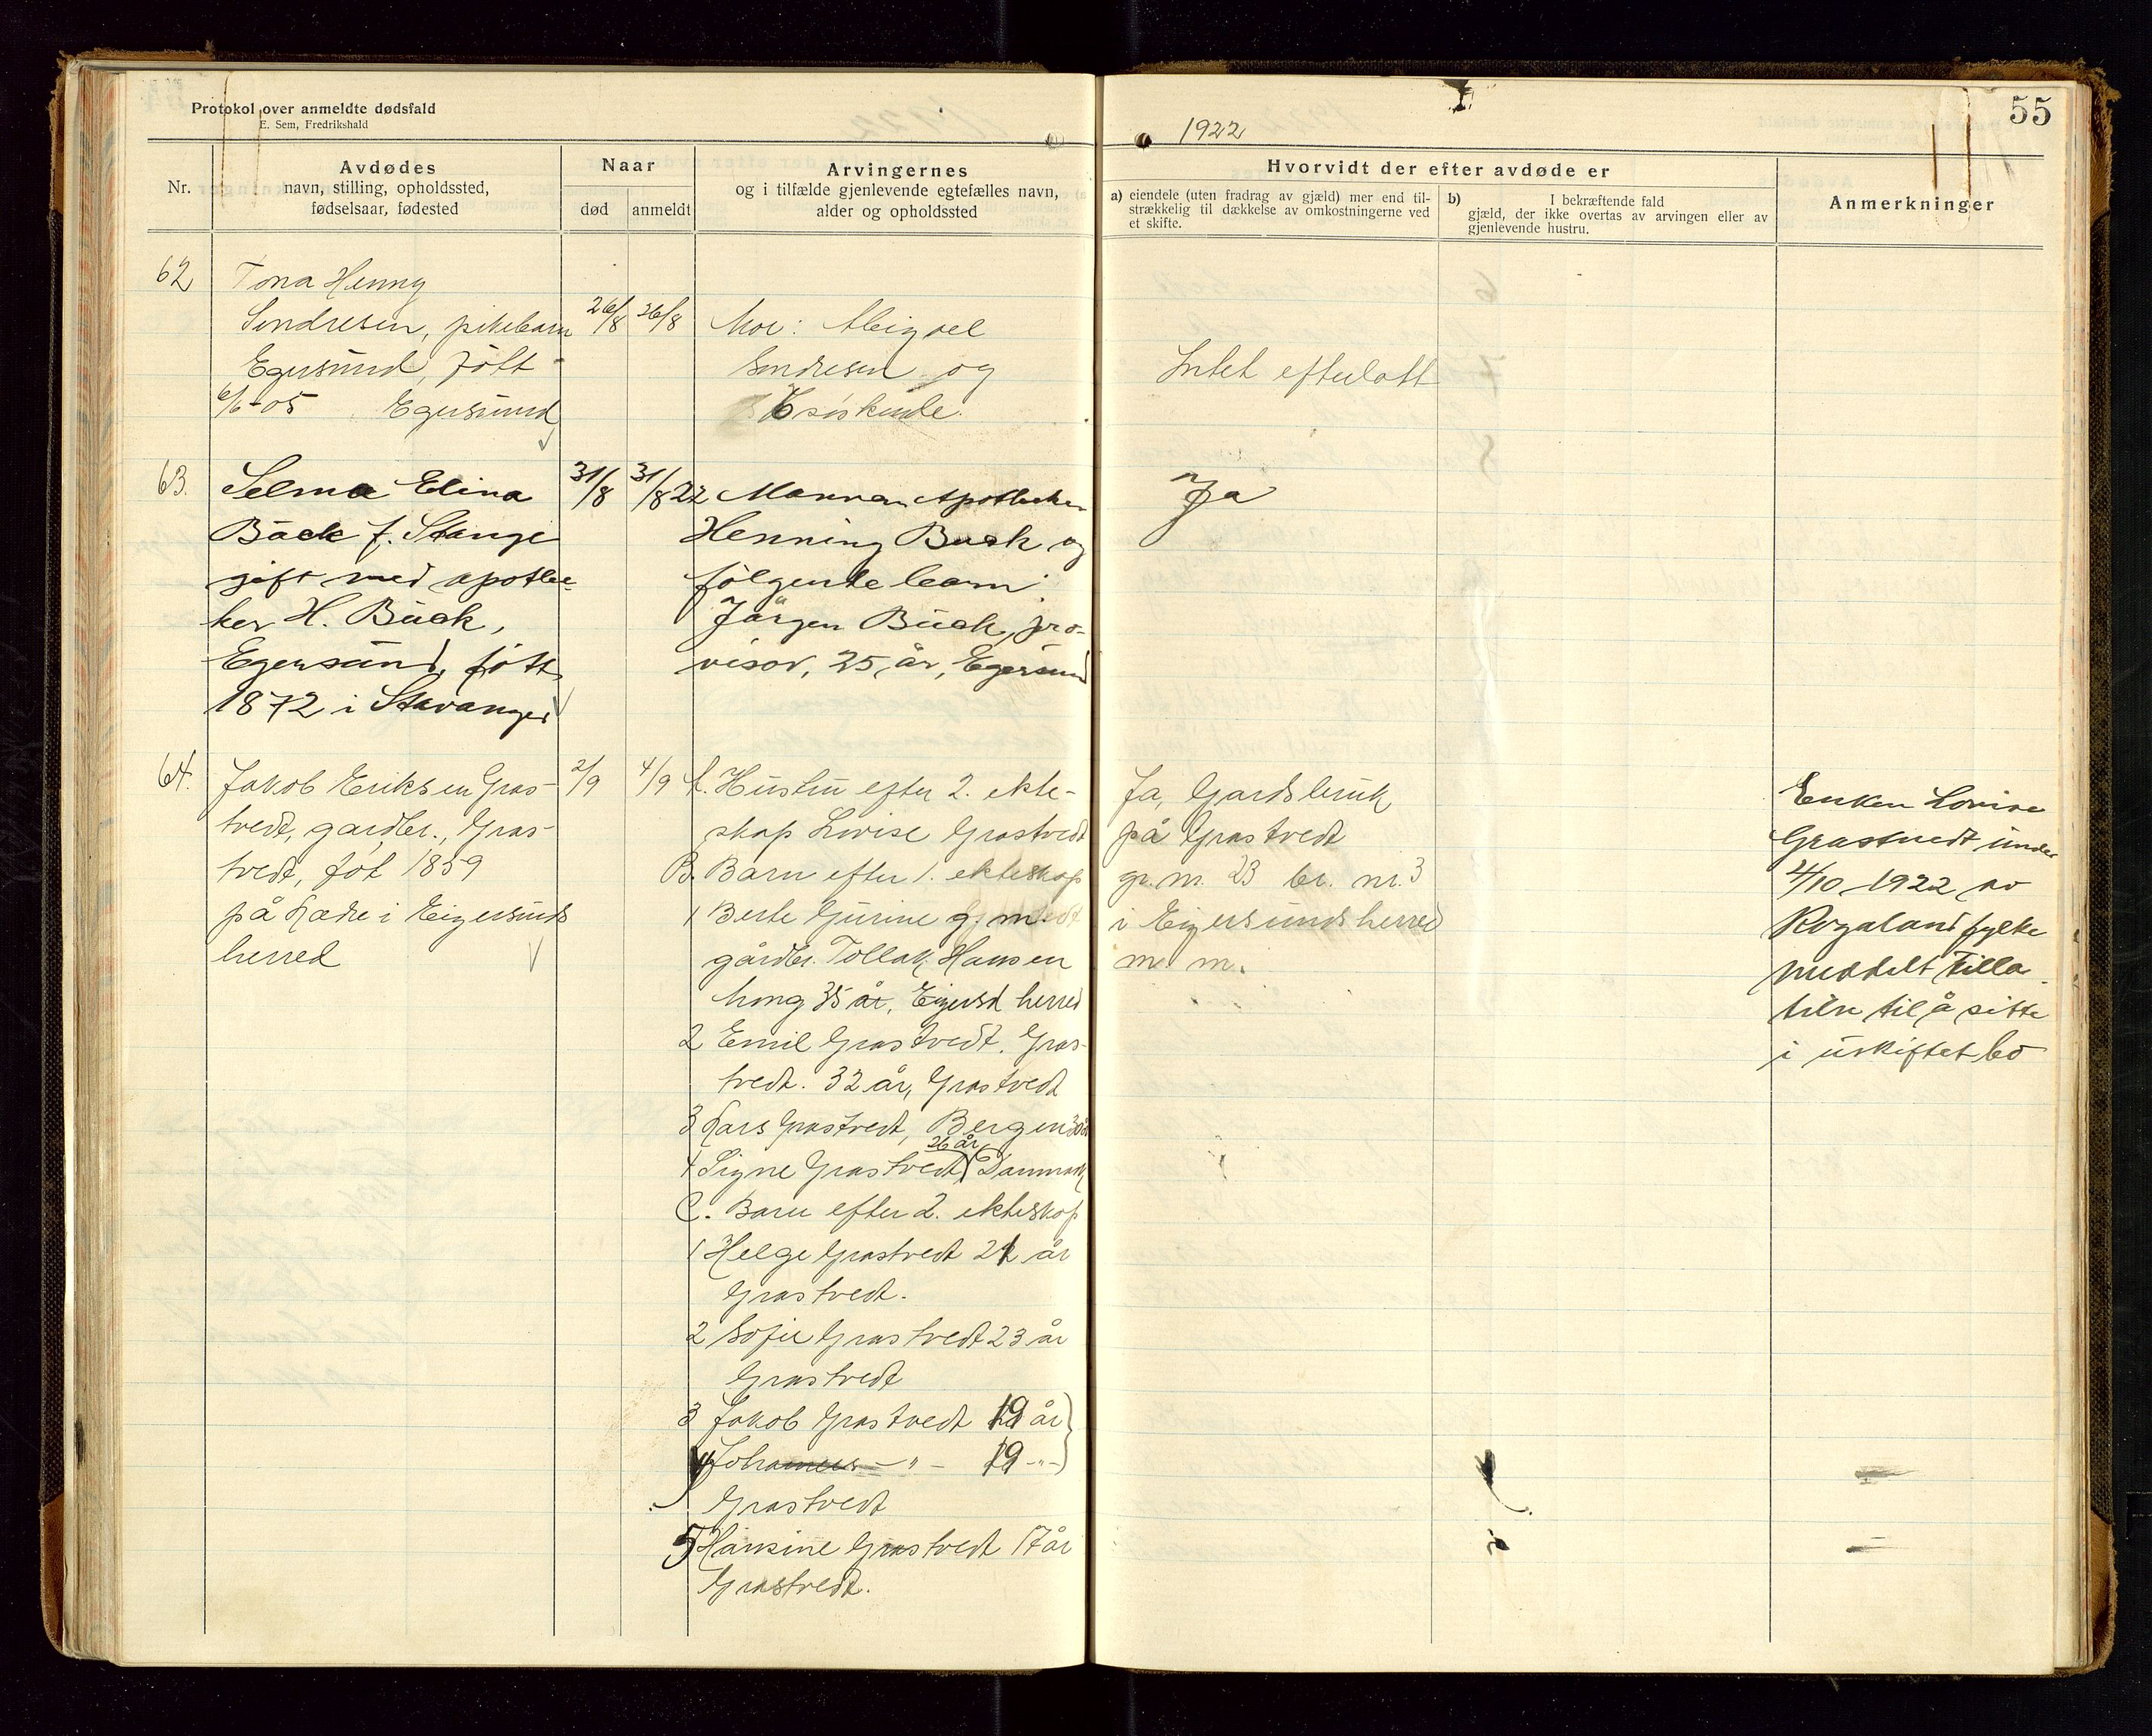 Protokol over anmeldte dødsfald
E. Sem, Fredrikshald
1922
55
Nr.
Avdødes
navn, stilling, opholdssted,
fødselsaar, fødested
Naar
død
anmeldt
Arvingernes
og i tilfælde gjenlevende egtefælles navn,
alder og opholdssted
Hvorvidt der efter avdøde er
a) eiendele (uten fradrag av gjæld) mer end til-
strækkelig til dækkelse av omkostningerne ved
et skifte.
b) I bekræftende fald
gjæld, der ikke overtas av arvingen eller av
gjenlevende hustru.
Anmerkninger
62
Tona Henny
Sindresen, pikebarn
Egersund, født
6/6-05 Egersund
26/8
26/8
Mor: Abigael
Sindresen og
søskende.
Intet efterlatt
63.
Selma Elina
Buck f. Stange
gift med apothe-
ker H. Buck,
Egersund, født
1872 i Stavanger
31/8
31/8 22
Mannen Apotheker
Henning Buck og
følgende barn:
Jørgen Buck, pro-
visor, 25 år, Egersund
Ja
64.
Jakob Eriksen Gras-
tvedt, gardbr., Gras-
tvedt, føt 1859
på Lædre i Eigersunds
herred
2/9
4/9
A. Hustru efter 2. ekte-
skap Lovise Grastvedt
B. Barn efter 1. ekteskap
1 Berte Gurine g. m.
gårdbr. Tollak Hansen
Hong 35 år, Eigersd herred
2 Emil Grastvedt, Gras-
tvedt. 32 år, Grastvedt
3 Lars Grastvedt, Bergen 30 år
26 år
4 Signe Grastvedt, Danmark
C. Barn efter 2. ekteskap
1 Helge Grastvedt 21 år
Grastvedt.
2 Sofie Grastvedt 23 år
Grastvedt
3 Jakob Grastvedt 19 år
4 Johannes -"- 19 -"-
Grastvedt
5 Hansine Grastvedt 17 år
Grastvedt.
Ja, Gardsbruk
på Grastvedt
gr. nr. 23 br. nr. 3
i Eigersunds herred
m. m.
Enken Lovise
Grastvedt under
4/10 1922 av
Rogaland fylke
meddelt tilla-
telse til å sitte
i uskiftet bo